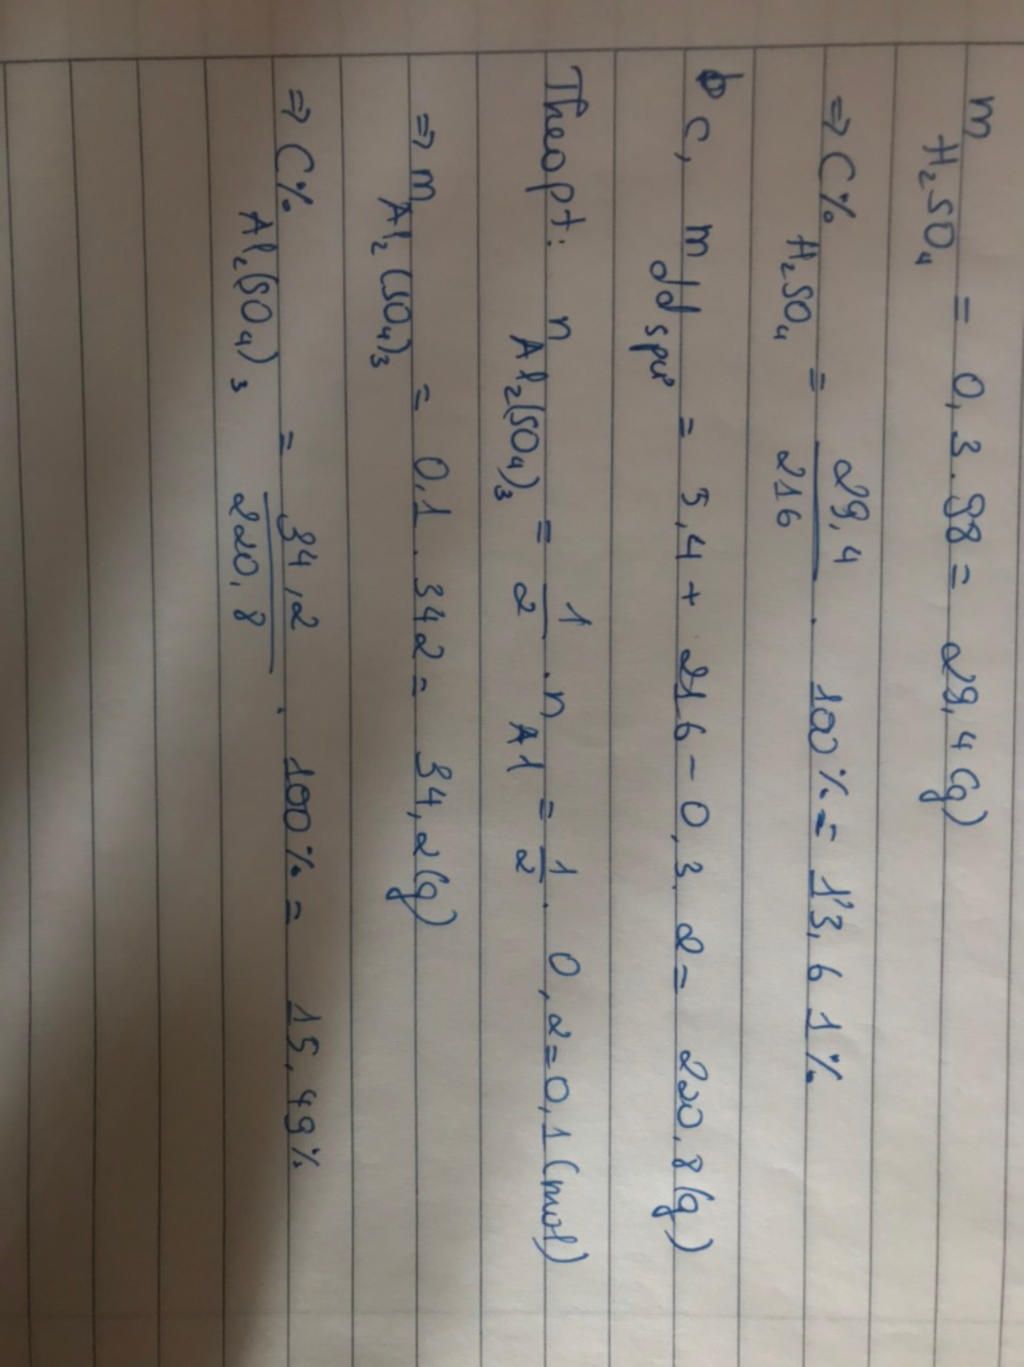 m H₂SO₄ = 0,3.98 = 29,4 (g)
⇒ C% H₂SO₄ = 29,4/216 . 100% = 13,61%
c, m dd spư = 5,4 + 216 - 0,3.2 = 220,8(g)
Theo pt: n Al₂(SO₄)₃ = 1/2 . n Al = 1/2 . 0,2 = 0,1 (mol)
⇒ m Al₂(SO₄)₃ = 0,1 . 342 = 34,2(g)
⇒ C% Al₂(SO₄)₃ = 34,2/220,8 . 100% = 15,49%